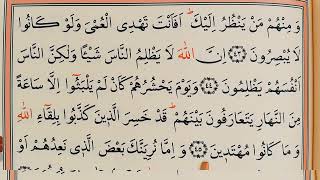 وَمِنْهُمْ مَنْ يَنْظُرُ اِلَيْكَۜ اَفَاَنْتَ تَهْدِى الْعُمْىَ وَلَوْ كَانُوا
لَا يُبْصِرُونَ ﴿٤٣﴾ اِنَّ اللّٰهَ لَا يَظْلِمُ النَّاسَ شَيْـًٔا وَلٰكِنَّ النَّاسَ
اَنْفُسَهُمْ يَظْلِمُونَ ﴿٤٤﴾ وَيَوْمَ يَحْشُرُهُمْ كَاَنْ لَمْ يَلْبَثُٓوا اِلَّا سَاعَةً
مِنَ النَّهَارِ يَتَعَارَفُونَ بَيْنَهُمْۜ قَدْ خَسِرَ الَّذِينَ كَذَّبُوا بِلِقَٓاءِ اللّٰهِ
وَمَا كَانُوا مُهْتَدِينَ ﴿٤٥﴾ وَاِمَّا نُرِيَنَّكَ بَعْضَ الَّذِى نَعِدُهُمْ اَوْ